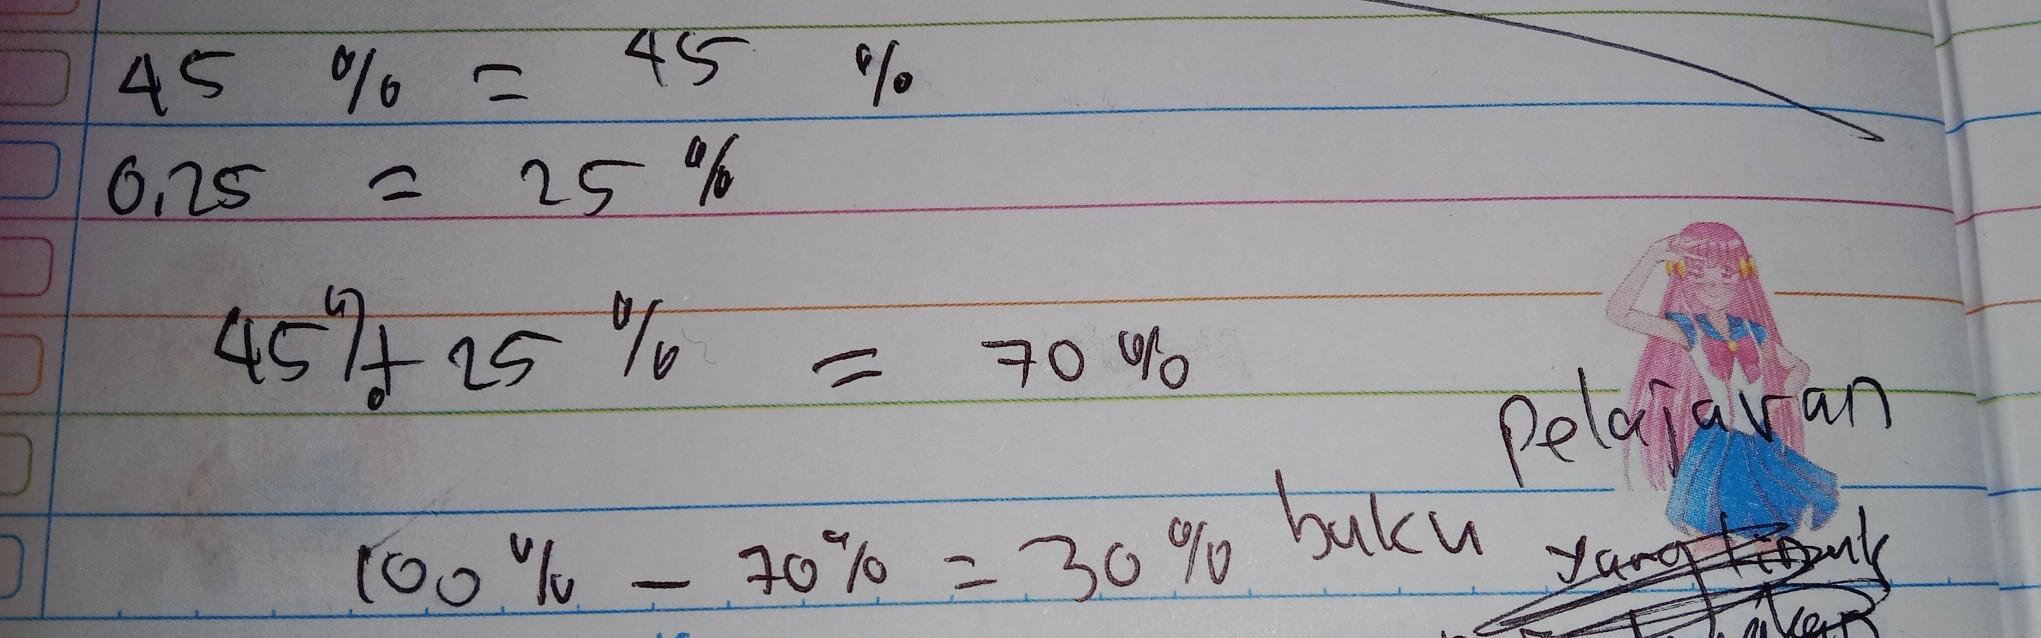 45 % = 45 %
0,25 = 25 %
45% + 25 % = 70 %
100 % - 70 % = 30 % buku pelajaran
yang